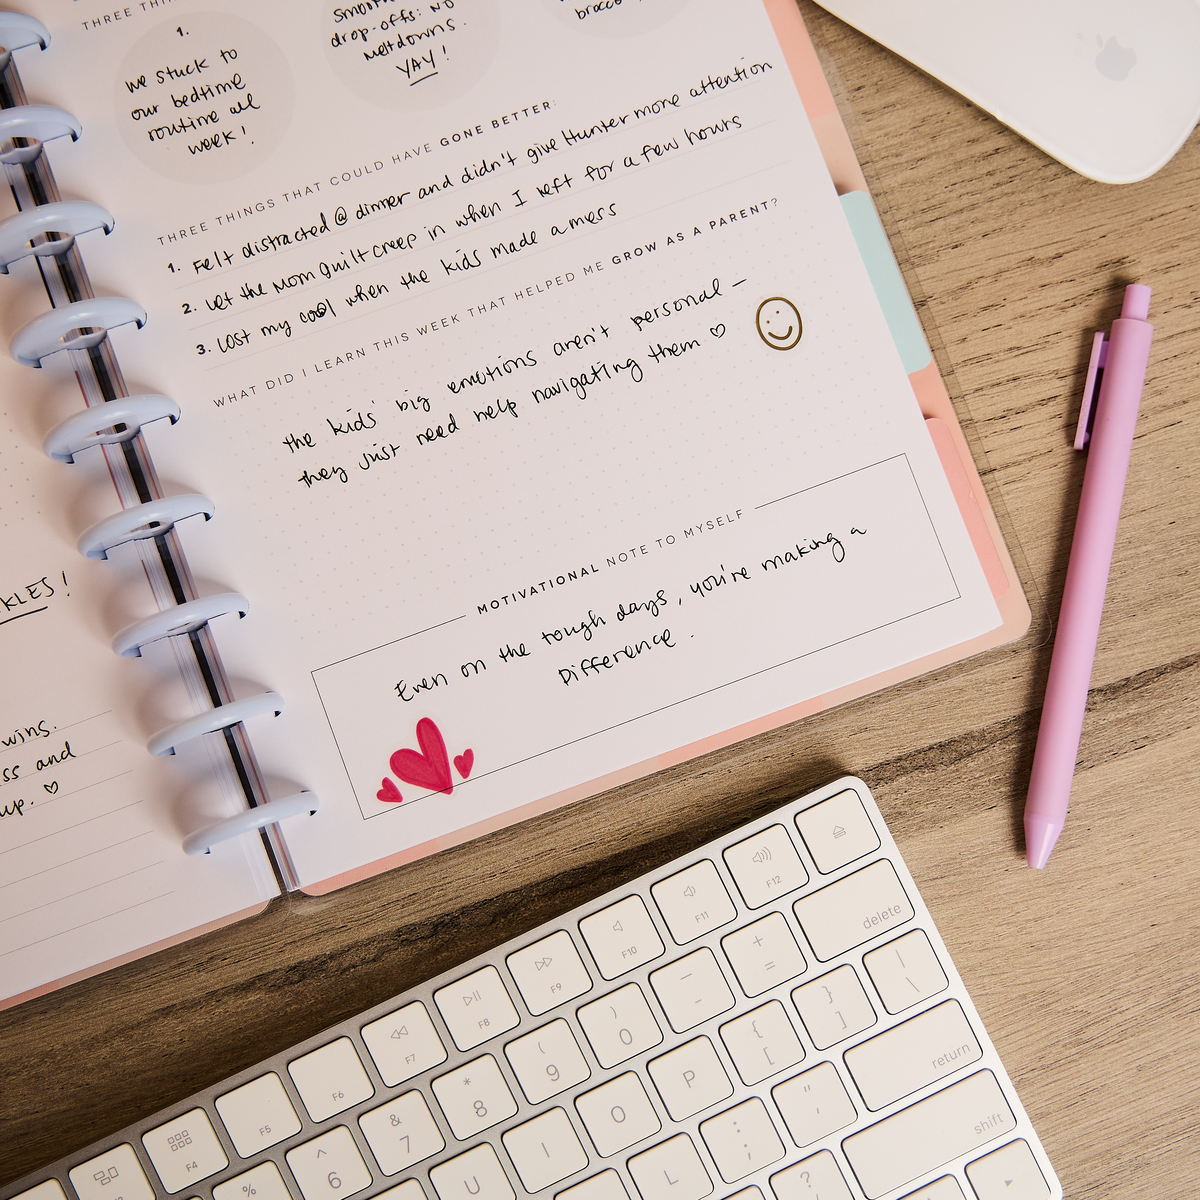 THREE
1.
we stuck to
our bedtime
routine all
week!
smooth
drop-offs: no
meltdowns.
YAY!
brocco
THREE THINGS THAT COULD HAVE GONE BETTER:
1. Felt distracted @ dinner and didn't give Hunter more attention
2. Let the mom guilt creep in when I left for a few hours
3. Lost my cool when the kids made a mess
WHAT DID I LEARN THIS WEEK THAT HELPED ME GROW AS A PARENT?
the kids' big emotions aren't personal –
they just need help navigating them ♡
MOTIVATIONAL NOTE TO MYSELF
Even on the tough days, you're making a
Difference.
KLES!
wins.
ss and
up. ♡
F4
F5
F6
F7
F8
F9
F10
F11
F12
%
^
6
&
7
*
8
(
9
)
0
—
-
+
=
delete
U
I
O
P
{
[
}
]
|
\
L
:
;
"
'
return
?
shift